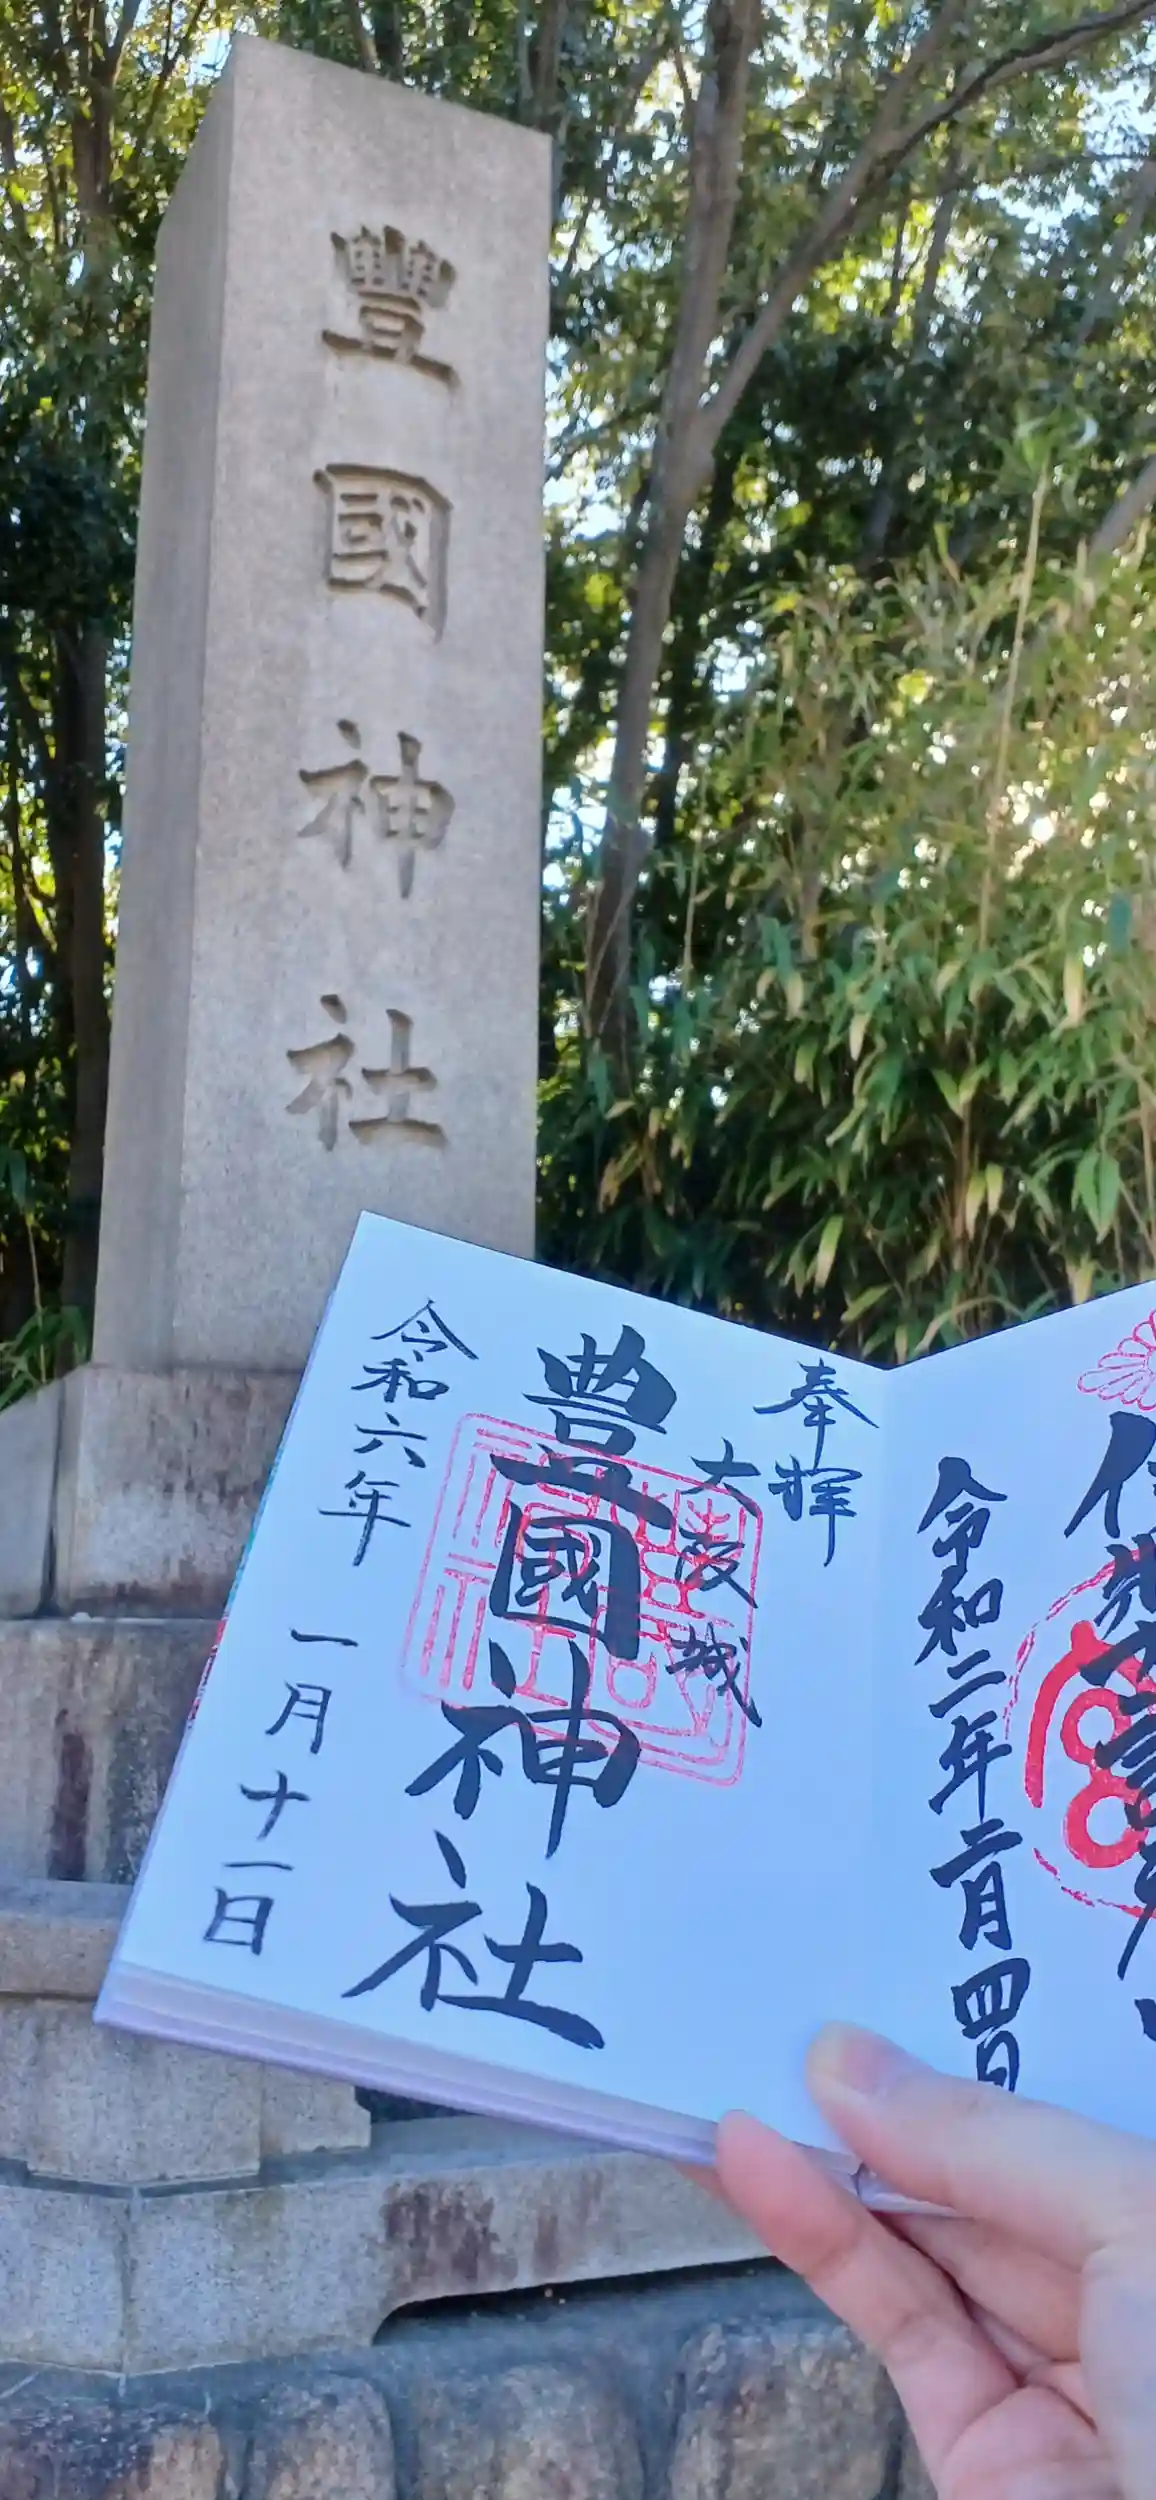 豐國神社
令和二年二月四日
奉拝
大阪城
豊國神社
令和六年
一月十一日